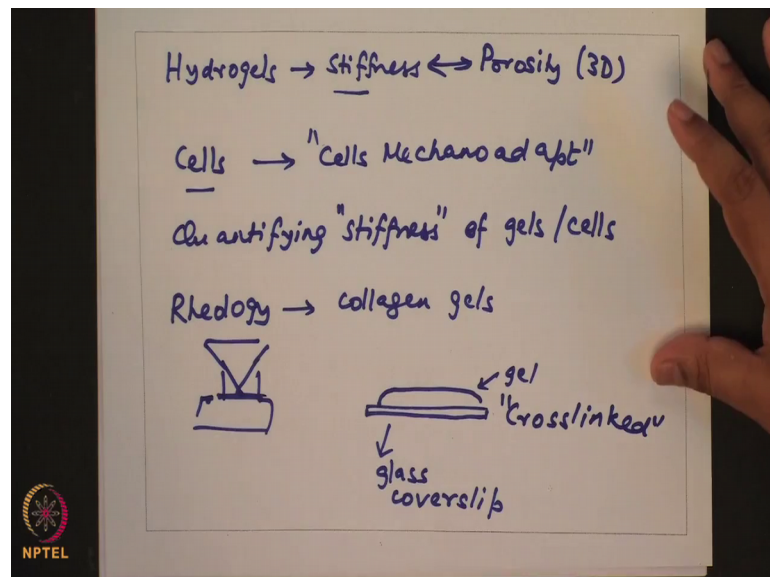 Hydrogels → stiffness ↔ Porosity (3D)
Cells → "Cells Mechanoadapt"
Quantifying "stiffness" of gels/cells
Rheology → collagen gels
gel
"Crosslinked"
glass
coverslip
NPTEL